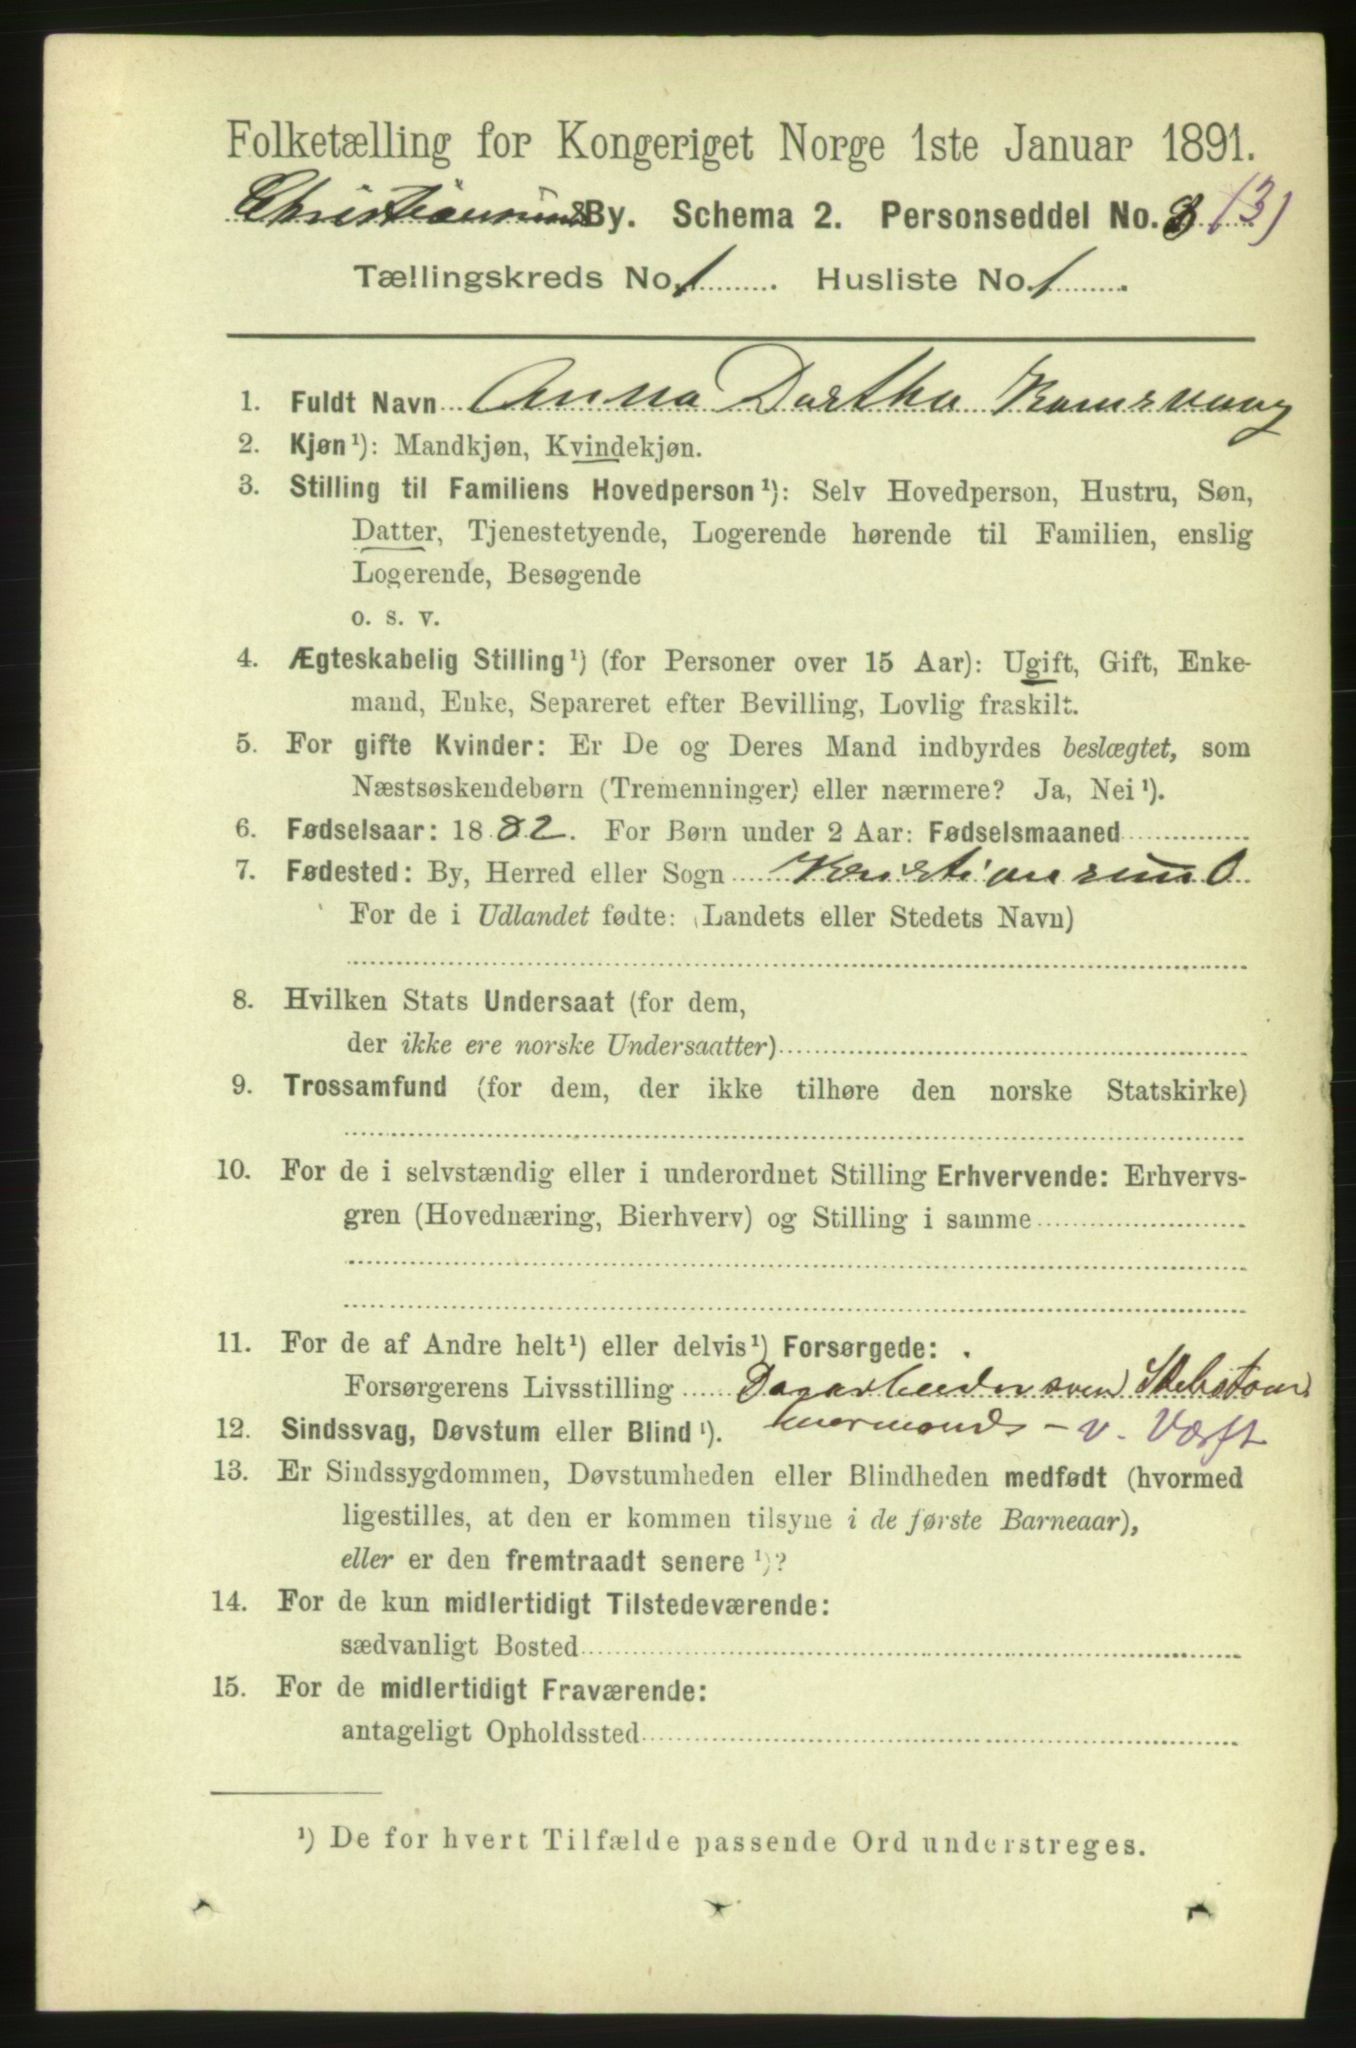 Folketælling for Kongeriget Norge 1ste Januar 1891.
Christianssunds By. Schema 2. Personseddel No. 3 (3)
Tællingskreds No. 1 Husliste No. 1
1. Fuldt Navn Anna Dorthea Ramsvaag
2. Kjøn¹): Mandkjøn, Kvindekjøn.
3. Stilling til Familiens Hovedperson¹): Selv Hovedperson, Hustru, Søn,
Datter, Tjenestetyende, Logerende hørende til Familien, enslig
Logerende, Besøgende
o. s. v.
4. Ægteskabelig Stilling¹) (for Personer over 15 Aar): Ugift, Gift, Enke-
mand, Enke, Separeret efter Bevilling, Lovlig fraskilt.
5. For gifte Kvinder: Er De og Deres Mand indbyrdes beslægtet, som
Næstsøskendebørn (Tremenninger) eller nærmere? Ja, Nei¹).
6. Fødselsaar: 1882. For Børn under 2 Aar: Fødselsmaaned
7. Fødested: By, Herred eller Sogn Kristiansund
For de i Udlandet fødte: (Landets eller Stedets Navn)
8. Hvilken Stats Undersaat (for dem,
der ikke ere norske Undersaatter)
9. Trossamfund (for dem, der ikke tilhøre den norske Statskirke)
10. For de i selvstændig eller i underordnet Stilling Erhvervende: Erhvervs-
gren (Hovednæring, Bierhverv) og Stilling i samme
11. For de af Andre helt¹) eller delvis¹) Forsørgede:
Forsørgerens Livsstilling
12. Sindssvag, Døvstum eller Blind¹). - v. Værft
13. Er Sindssygdommen, Døvstumheden eller Blindheden medfødt (hvormed
ligestilles, at den er kommen tilsyne i de første Barneaar),
eller er den fremtraadt senere¹)?
14. For de kun midlertidigt Tilstedeværende:
sædvanligt Bosted
15. For de midlertidigt Fraværende:
antageligt Opholdssted
¹) De for hvert Tilfælde passende Ord understreges.